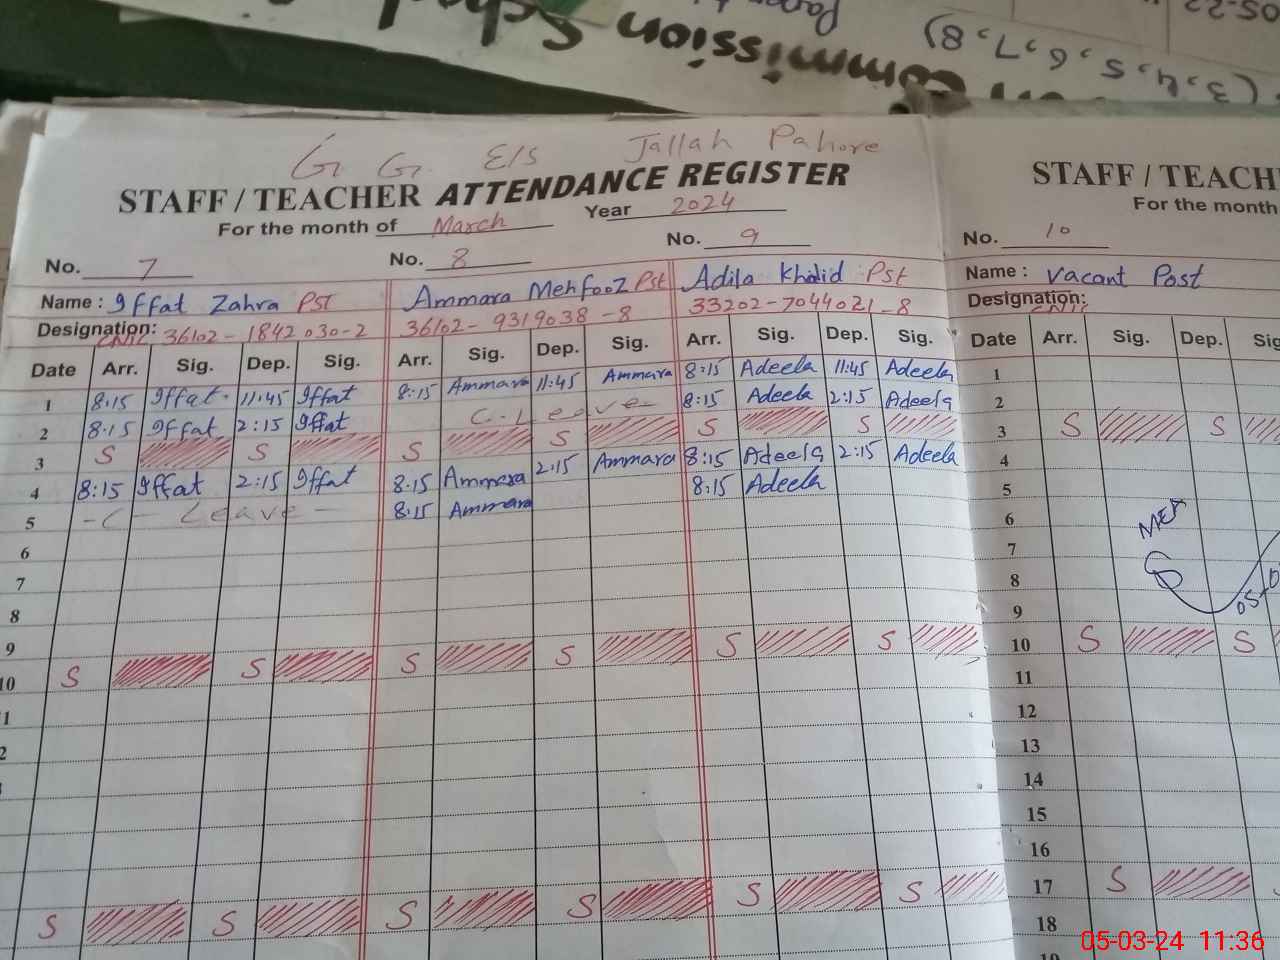 (3,4,5,6,7,8)
Commission School
05-22
G. G. E/S Jallah Pahore
STAFF/TEACHER ATTENDANCE REGISTER
For the month of March Year 2024
No. 7 No. 8 No. 9
Name: Iffat Zahra Pst Ammara Mehfooz Pst Adila Khalid Pst
Designation: CNIC 36102-1842030-2 36102-9319038-8 33202-7044021-8
Date Arr. Sig. Dep. Sig. Arr. Sig. Dep. Sig. Arr. Sig. Dep. Sig.
1 8:15 Iffat 11:45 Iffat 8:15 Ammara 11:45 Ammara 8:15 Adeela 11:45 Adeela
2 8:15 Iffat 2:15 Iffat C. Leave 8:15 Adeela 2:15 Adeela
3 S S S S S S
4 8:15 Iffat 2:15 Iffat 8:15 Ammara 2:15 Ammara 8:15 Adeela 2:15 Adeela
5 - C - Leave - 8:15 Ammara 8:15 Adeela
6
7
8
9
10 S S S S S S
1
2
S S S S S S
STAFF/TEACH
For the month
No. 10
Name: Vacant Post
Designation: CNIC
Date Arr. Sig. Dep. Sig
1
2
3 S S
4
5
6 MEA
7
8
9 05-0
10 S S
11
12
13
14
15
16
17 S
18
19
05-03-24 11:36